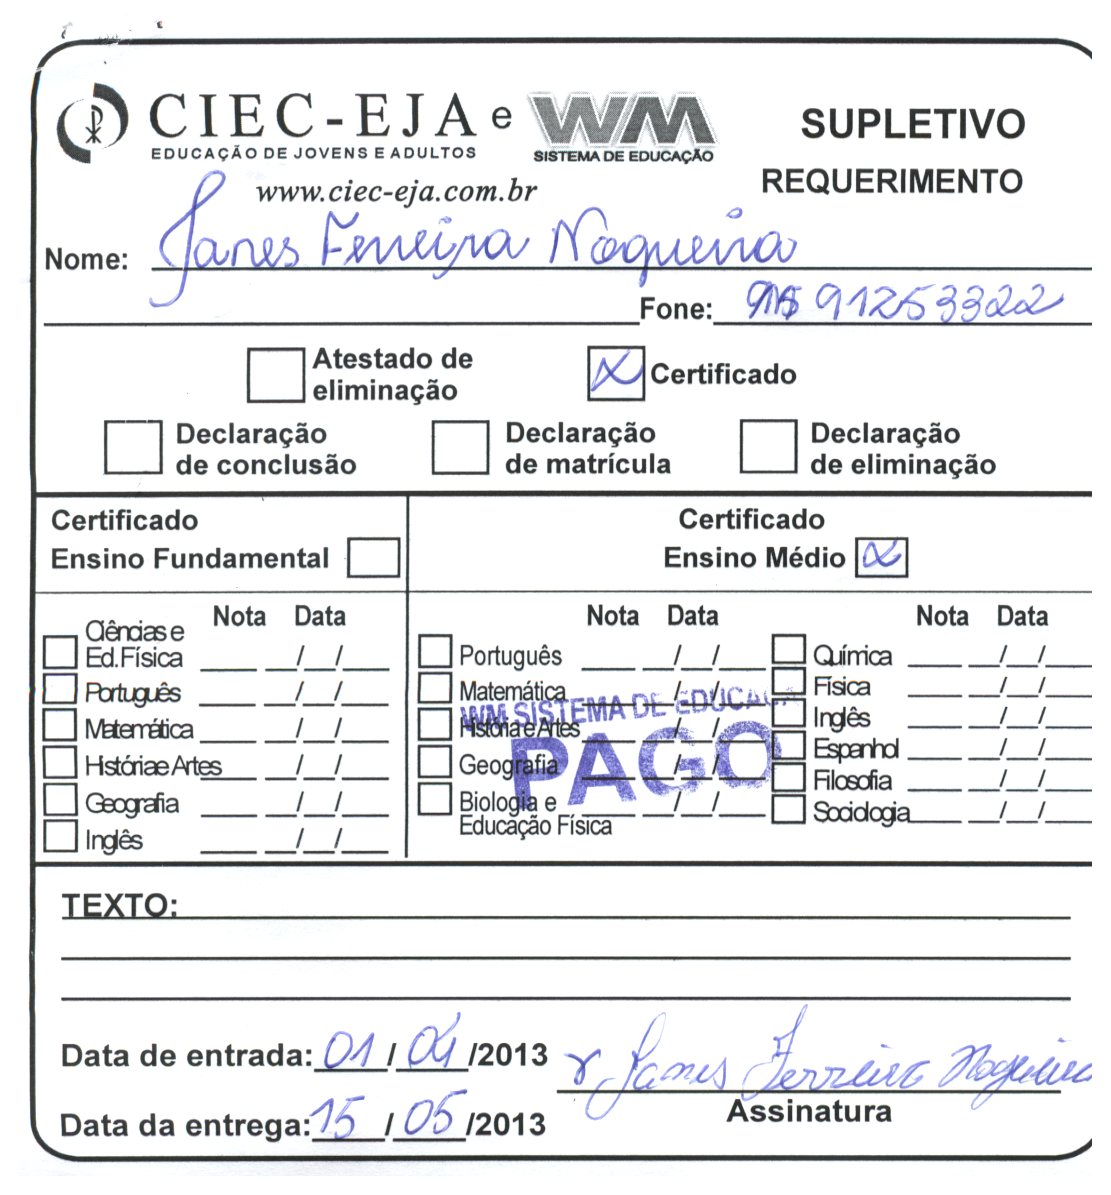 CIEC-EJA e WM
EDUCAÇÃO DE JOVENS E ADULTOS
SISTEMA DE EDUCAÇÃO
www.ciec-eja.com.br
SUPLETIVO
REQUERIMENTO
Nome: Janes Ferreira Nogueira
Fone: 91253322
Atestado de eliminação
Certificado
Declaração de conclusão
Declaração de matrícula
Declaração de eliminação
Certificado
Ensino Fundamental
Certificado
Ensino Médio
Nota Data
Ciências e
Ed. Física ____ __/__/____
Português ____ __/__/____
Matemática ____ __/__/____
História e Artes ____ __/__/____
Geografia ____ __/__/____
Inglês ____ __/__/____
Nota Data
Português ____ __/__/____
Matemática ____ __/__/____
História e Artes ____ __/__/____
Geografia ____ __/__/____
Biologia e
Educação Física ____ __/__/____
WM SISTEMA DE EDUCAÇÃ
PAGO
Nota Data
Química ____ __/__/____
Física ____ __/__/____
Inglês ____ __/__/____
Espanhol ____ __/__/____
Filosofia ____ __/__/____
Sociologia ____ __/__/____
TEXTO:
Data de entrada: 01/04/2013
Janes Ferreira Nogueira
Data da entrega: 15/05/2013
Assinatura